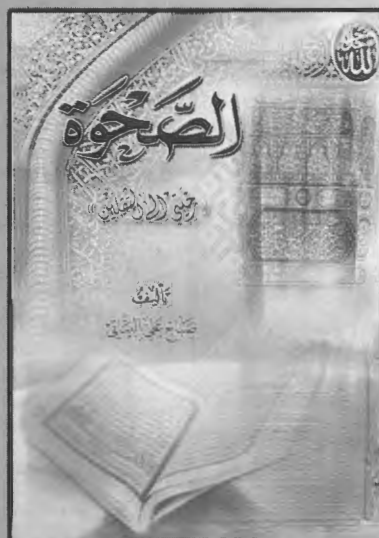 الله
الصَّحْوَة
« رحلتي إلى الثقلين »
تأليف
صباح علي البياتي